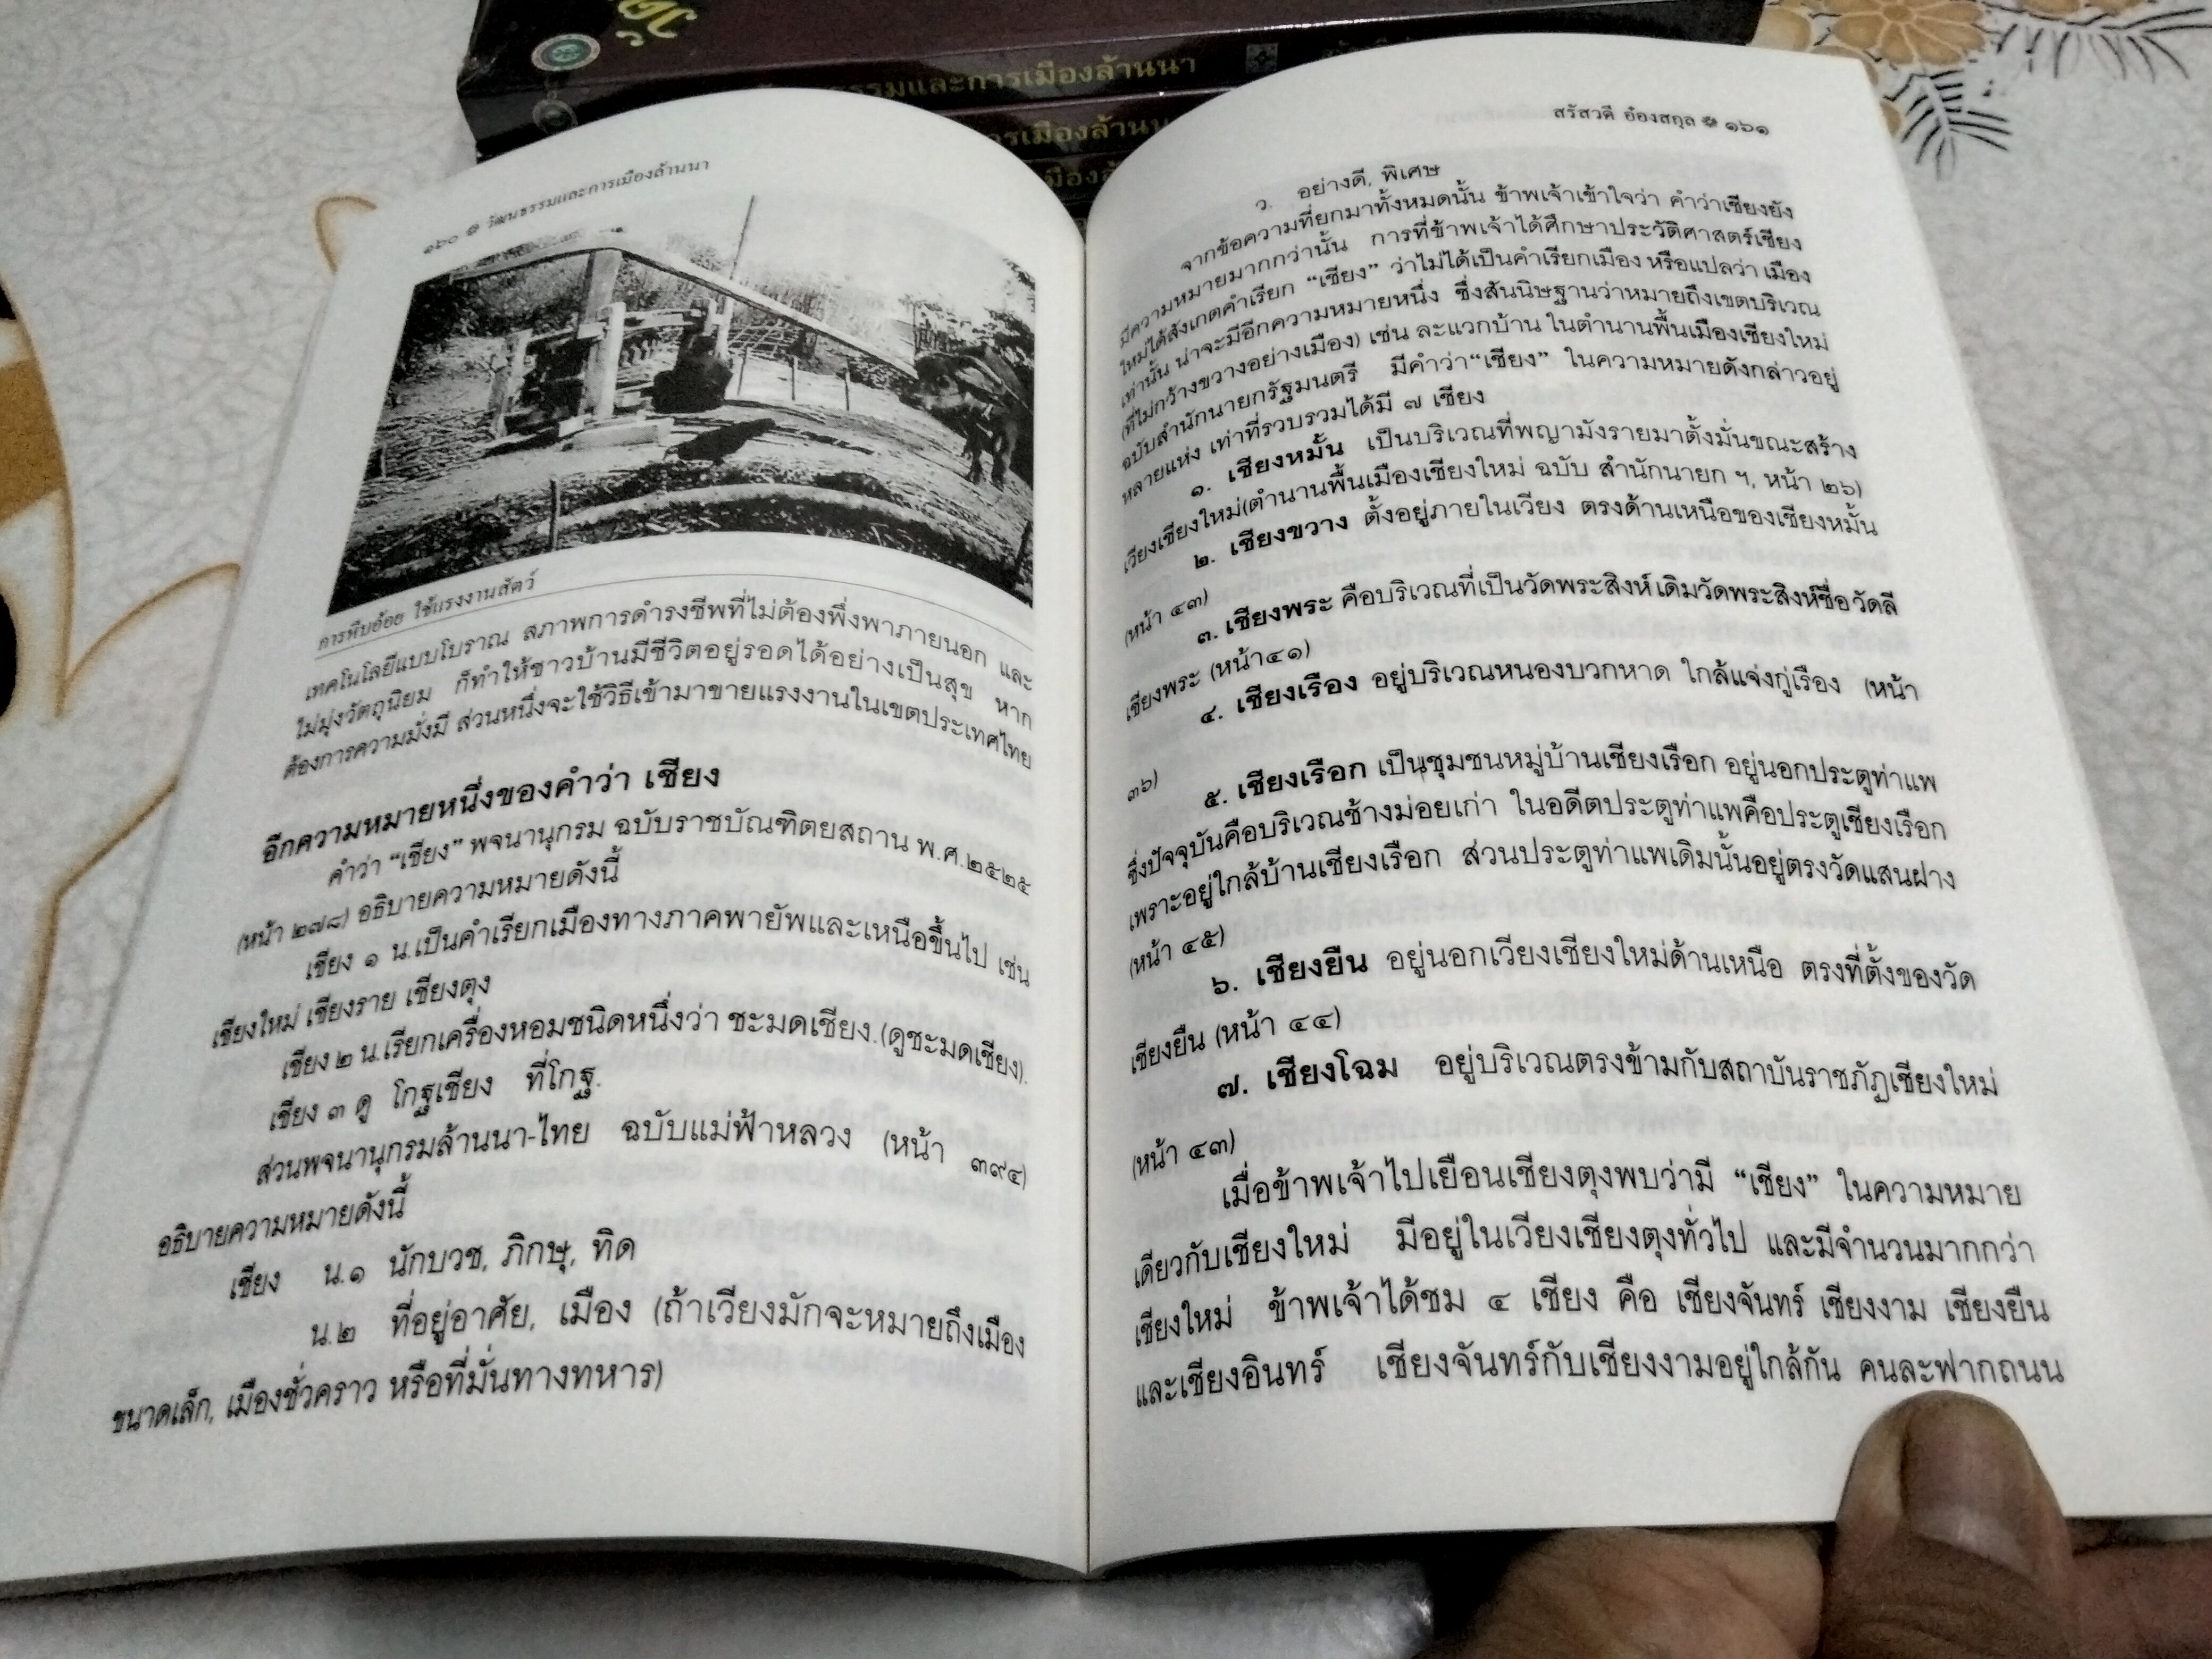 วัฒนธรรมและการเมืองล้านนา
การเมืองล้านนา
๑๖๐ วัฒนธรรมและการเมืองล้านนา
การหีบอ้อย ใช้แรงงานสัตว์
เทคโนโลยีแบบโบราณ สภาพการดำรงชีพที่ไม่ต้องพึ่งพาภายนอก และ
ไม่มุ่งวัตถุนิยม ก็ทำให้ชาวบ้านมีชีวิตอยู่รอดได้อย่างเป็นสุข หาก
ต้องการความมั่งมี ส่วนหนึ่งจะใช้วิธีเข้ามาขายแรงงานในเขตประเทศไทย
อีกความหมายหนึ่งของคำว่า เชียง
คำว่า “เชียง” พจนานุกรม ฉบับราชบัณฑิตยสถาน พ.ศ.๒๕๒๕
(หน้า ๒๗๘) อธิบายความหมายดังนี้
เชียง ๑ น.เป็นคำเรียกเมืองทางภาคพายัพและเหนือขึ้นไป เช่น
เชียงใหม่ เชียงราย เชียงตุง
เชียง ๒ น.เรียกเครื่องหอมชนิดหนึ่งว่า ชะมดเชียง.(ดูชะมดเชียง).
เชียง ๓ ดู โกฐเชียง ที่โกฐ.
ส่วนพจนานุกรมล้านนา-ไทย ฉบับแม่ฟ้าหลวง (หน้า ๓๙๔)
อธิบายความหมายดังนี้
เชียง น.๑ นักบวช, ภิกษุ, ทิด
น.๒ ที่อยู่อาศัย, เมือง (ถ้าเวียงมักจะหมายถึงเมือง
ขนาดเล็ก, เมืองชั่วคราว หรือที่มั่นทางทหาร)
สรัสวดี อ๋องสกุล ๑๖๑
ว. อย่างดี, พิเศษ
จากข้อความที่ยกมาทั้งหมดนั้น ข้าพเจ้าเข้าใจว่า คำว่าเชียงยัง
มีความหมายมากกว่านั้น การที่ข้าพเจ้าได้ศึกษาประวัติศาสตร์เชียง
ใหม่ได้สังเกตคำเรียก “เชียง” ว่าไม่ได้เป็นคำเรียกเมือง หรือแปลว่า เมือง
เท่านั้น น่าจะมีอีกความหมายหนึ่ง ซึ่งสันนิษฐานว่าหมายถึงเขตบริเวณ
(ที่ไม่กว้างขวางอย่างเมือง) เช่น ละแวกบ้าน ในตำนานพื้นเมืองเชียงใหม่
ฉบับสำนักนายกรัฐมนตรี มีคำว่า“เชียง” ในความหมายดังกล่าวอยู่
หลายแห่ง เท่าที่รวบรวมได้มี ๗ เชียง
๑. เชียงหมั้น เป็นบริเวณที่พญามังรายมาตั้งมั่นขณะสร้าง
เวียงเชียงใหม่(ตำนานพื้นเมืองเชียงใหม่ ฉบับ สำนักนายก ฯ, หน้า ๒๖)
๒. เชียงขวาง ตั้งอยู่ภายในเวียง ตรงด้านเหนือของเชียงหมั้น
(หน้า ๔๓)
๓. เชียงพระ คือบริเวณที่เป็นวัดพระสิงห์ เดิมวัดพระสิงห์ชื่อ วัดลี
เชียงพระ (หน้า๔๑)
๔. เชียงเรือง อยู่บริเวณหนองบวกหาด ใกล้แจ่งกู่เรือง (หน้า
๓๖)
๕. เชียงเรือก เป็นชุมชนหมู่บ้านเชียงเรือก อยู่นอกประตูท่าแพ
ซึ่งปัจจุบันคือบริเวณช้างม่อยเก่า ในอดีตประตูท่าแพคือประตูเชียงเรือก
เพราะอยู่ใกล้บ้านเชียงเรือก ส่วนประตูท่าแพเดิมนั้นอยู่ตรงวัดแสนฝาง
(หน้า ๔๕)
๖. เชียงยืน อยู่นอกเวียงเชียงใหม่ด้านเหนือ ตรงที่ตั้งของวัด
เชียงยืน (หน้า ๔๔)
๗. เชียงโฉม อยู่บริเวณตรงข้ามกับสถาบันราชภัฏเชียงใหม่
(หน้า ๔๓)
เมื่อข้าพเจ้าไปเยือนเชียงตุงพบว่ามี “เชียง” ในความหมาย
เดียวกับเชียงใหม่ มีอยู่ในเวียงเชียงตุงทั่วไป และมีจำนวนมากกว่า
เชียงใหม่ ข้าพเจ้าได้ชม ๔ เชียง คือ เชียงจันทร์ เชียงงาม เชียงยืน
และเชียงอินทร์ เชียงจันทร์กับเชียงงามอยู่ใกล้กัน คนละฟากถนน